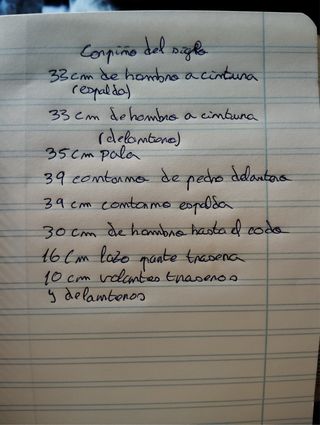 Corpiño del siglo
33 cm de hombro a cintura
(espalda)
33 cm de hombro a cintura
(delantero)
35 cm pala
39 contorno de pecho delantero
39 cm contorno espalda
30 cm de hombro hasta el codo
16 cm lazo parte trasera
10 cm volantes traseros
y delanteros